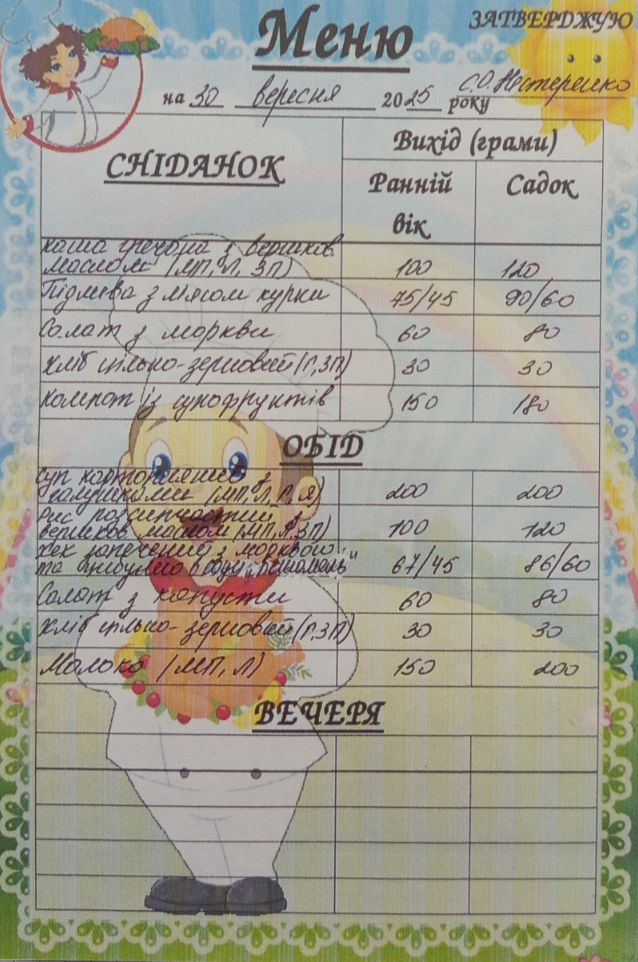 Меню
ЗАТВЕРДЖУЮ
С.О. Нестеренко
на 30 вересня 2025 року
СНІДАНОК
Вихід (грами)
Ранній вік
Садок
каша гречана з вершков.
маслом (МП, Л, ЗП) 100 120
Підлива з м'ясом курки 75/45 90/60
Салат з моркви 60 80
Хліб цільно-зерновий (Г, ЗП) 30 30
компот із сухофруктів 150 180
ОБІД
суп картопляний з
галушками (МП, Л, Г, Я) 200 200
рис розсипчастий з
вершков маслом (МП, Л, ЗП) 100 120
хек запечений з морквою
та цибулею в соусі "Бешамель" 67/45 86/60
Салат з капусти 60 80
Хліб цільно-зерновий (Г, ЗП) 30 30
Молоко (МП, Л) 150 200
ВЕЧЕРЯ